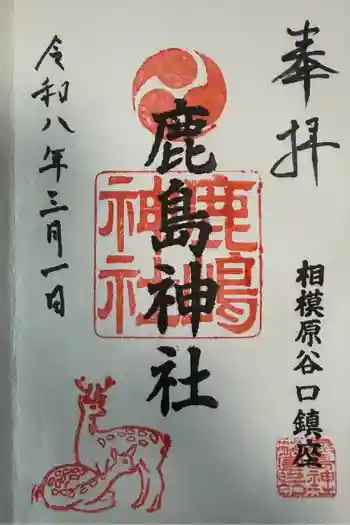 奉拝
相模原谷口鎮座
鹿島神社
鹿嶋
神社
令和八年三月一日